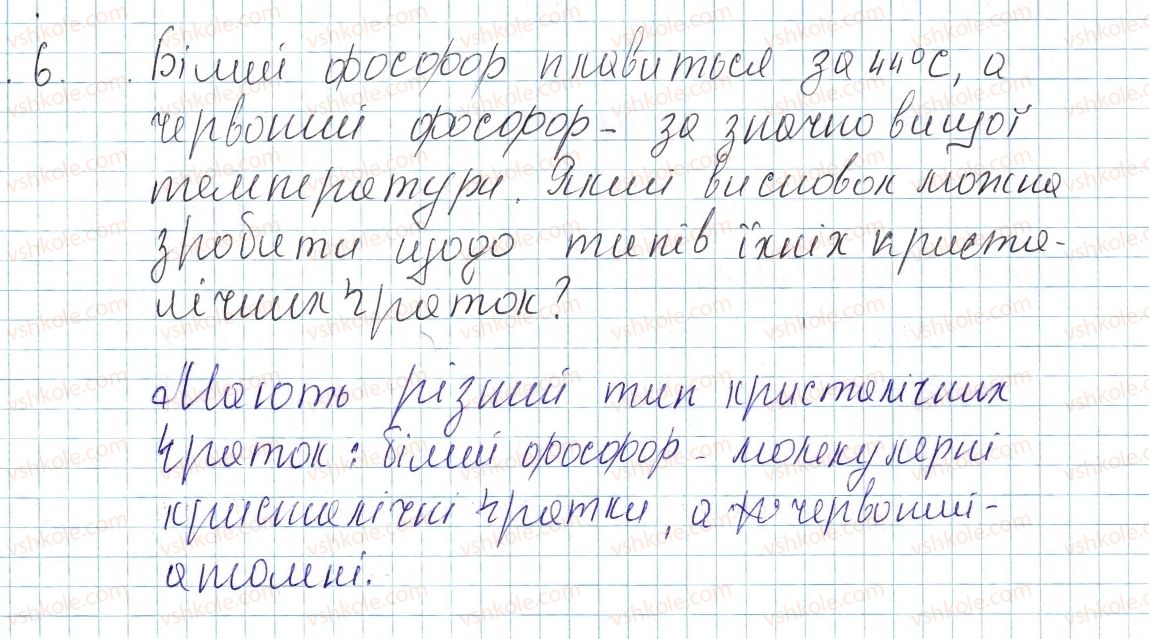 6. Білий фосфор плавиться за 44°С, а
червоний фосфор - за значно вищої
температури. Який висновок можна
зробити щодо типів їхніх криста-
лічних ґраток?
Мають різний тип кристалічних
ґраток: білий фосфор - молекулярні
кристалічні ґратки, а червоний -
атомні.